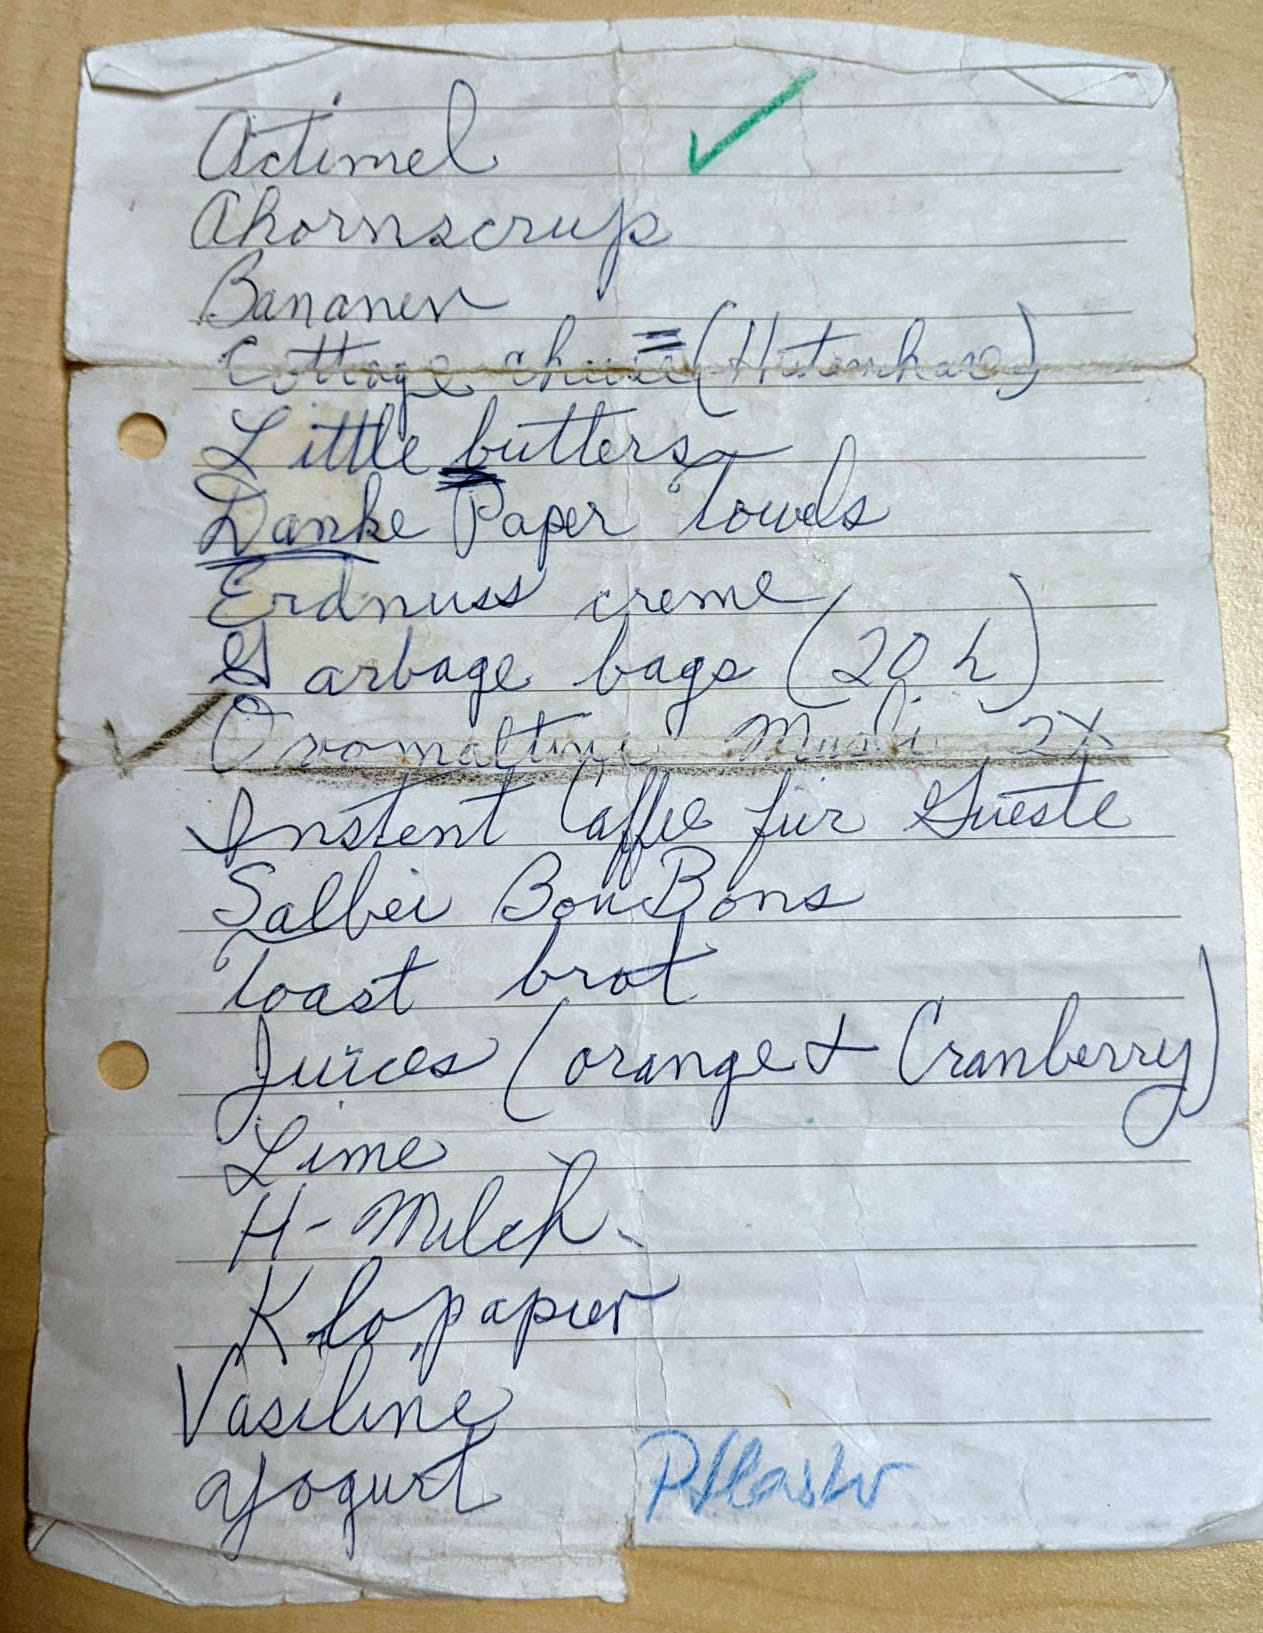 Actimel
Ahornscrup
Bananen
Cottage chease (Hutenkase)
Little butters
Danke Paper Towels
Erdnuss creme
Garbage bags (20 L)
Ovomaltine Musli 2X
Instent Caffee für Gueste
Salbei BonBons
Toast brot
Juices (orange + Cranberry)
Lime
H-Milch
Klopapier
Vasiline
Yogurt Pflaster